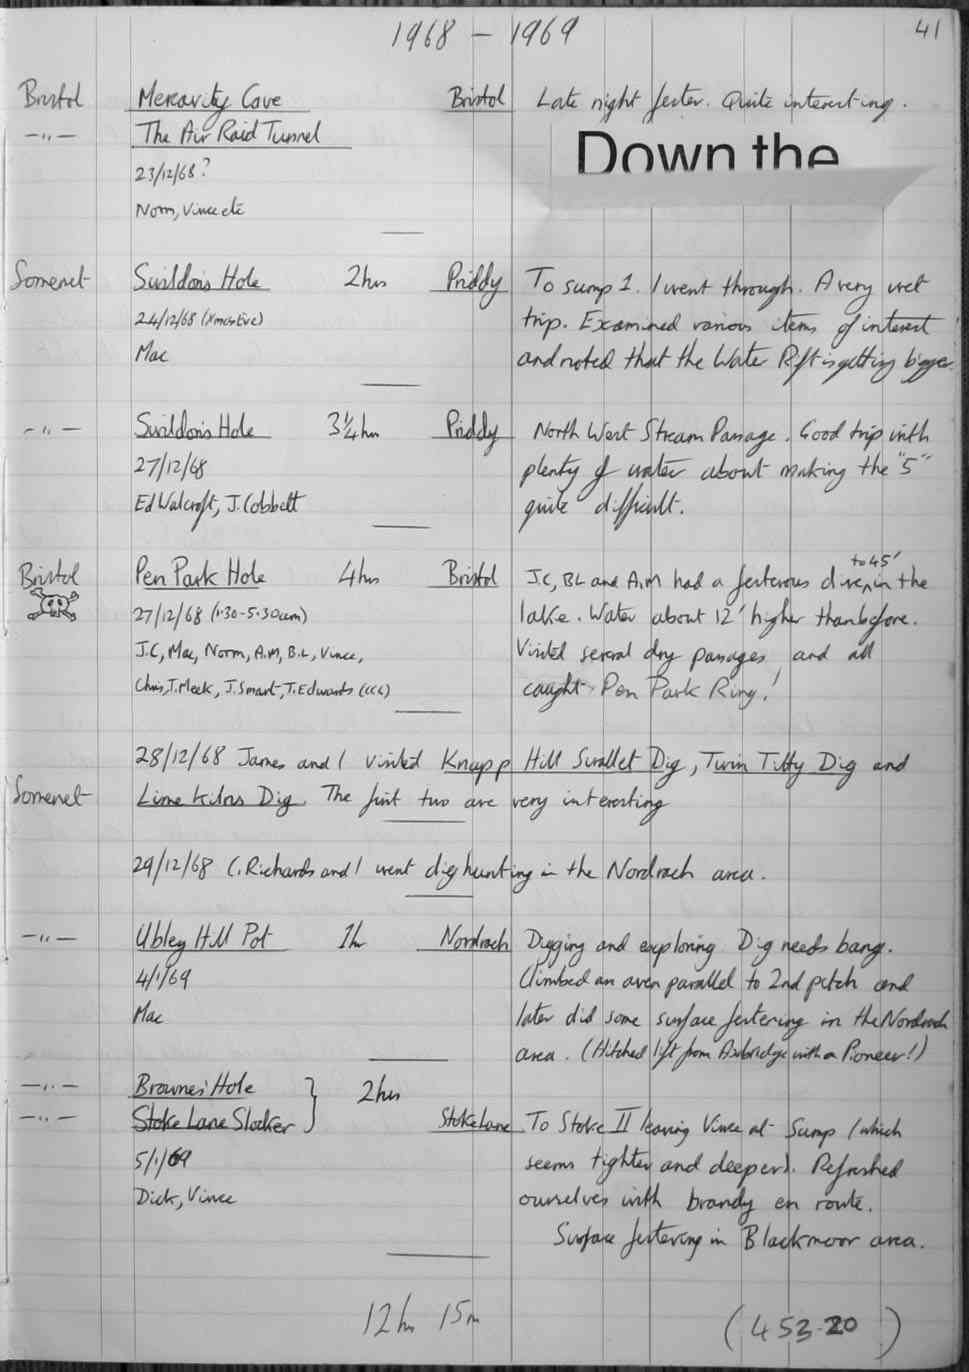 1968 — 1969
41
Bristol Mercavity Cave Bristol Late night fester. Quite interesting.
—"— The Air Raid Tunnel
Down the
23/12/68?
Norm, Vince etc
Somerset Swildon's Hole 2hrs Priddy To sump 1. I went through. A very wet
24/12/68 (Xmas Eve) trip. Examined various items of interest
Mac and noted that the Water Rift is getting bigger.
—"— Swildon's Hole 3¼hrs Priddy North West Stream Passage. Good trip with
27/12/68 plenty of water about making the "5"
Ed Walcroft, J. Cobbett quite difficult.
Bristol Pen Park Hole 4hrs Bristol JC, BL and A.M had a festerous dive, to 45' in the
27/12/68 (1.30-5.30am) lake. Water about 12' higher than before.
J.C, Mac, Norm, A.M, B.L, Vince, Visited several dry passages and all
Chris, T. Meek, J. Smart, T. Edwards (CCG) caught Pen Park Ring!
28/12/68 James and I visited Knapp Hill Swallet Dig, Twin Titty Dig and
Somerset Lime Kilns Dig. The first two are very interesting
29/12/68 C. Richards and I went dig hunting in the Nordrach area.
—"— Ubley Hill Pot 1hr Nordrach Digging and exploring Dig needs bang.
4/1/69 Climbed an aven parallel to 2nd pitch and
Mac later did some surface festering in the Nordrach
area. (Hitched lift from Axbridge with a Pioneer!)
—"— Browne's Hole 2hrs
—"— Stoke Lane Slocker Stoke Lane To Stoke II leaving Vince at Sump (which
5/1/69 seems tighter and deeper). Refreshed
Dick, Vince ourselves with brandy en route.
Surface festering in Blackmoor area.
12hrs 15m (453.20)